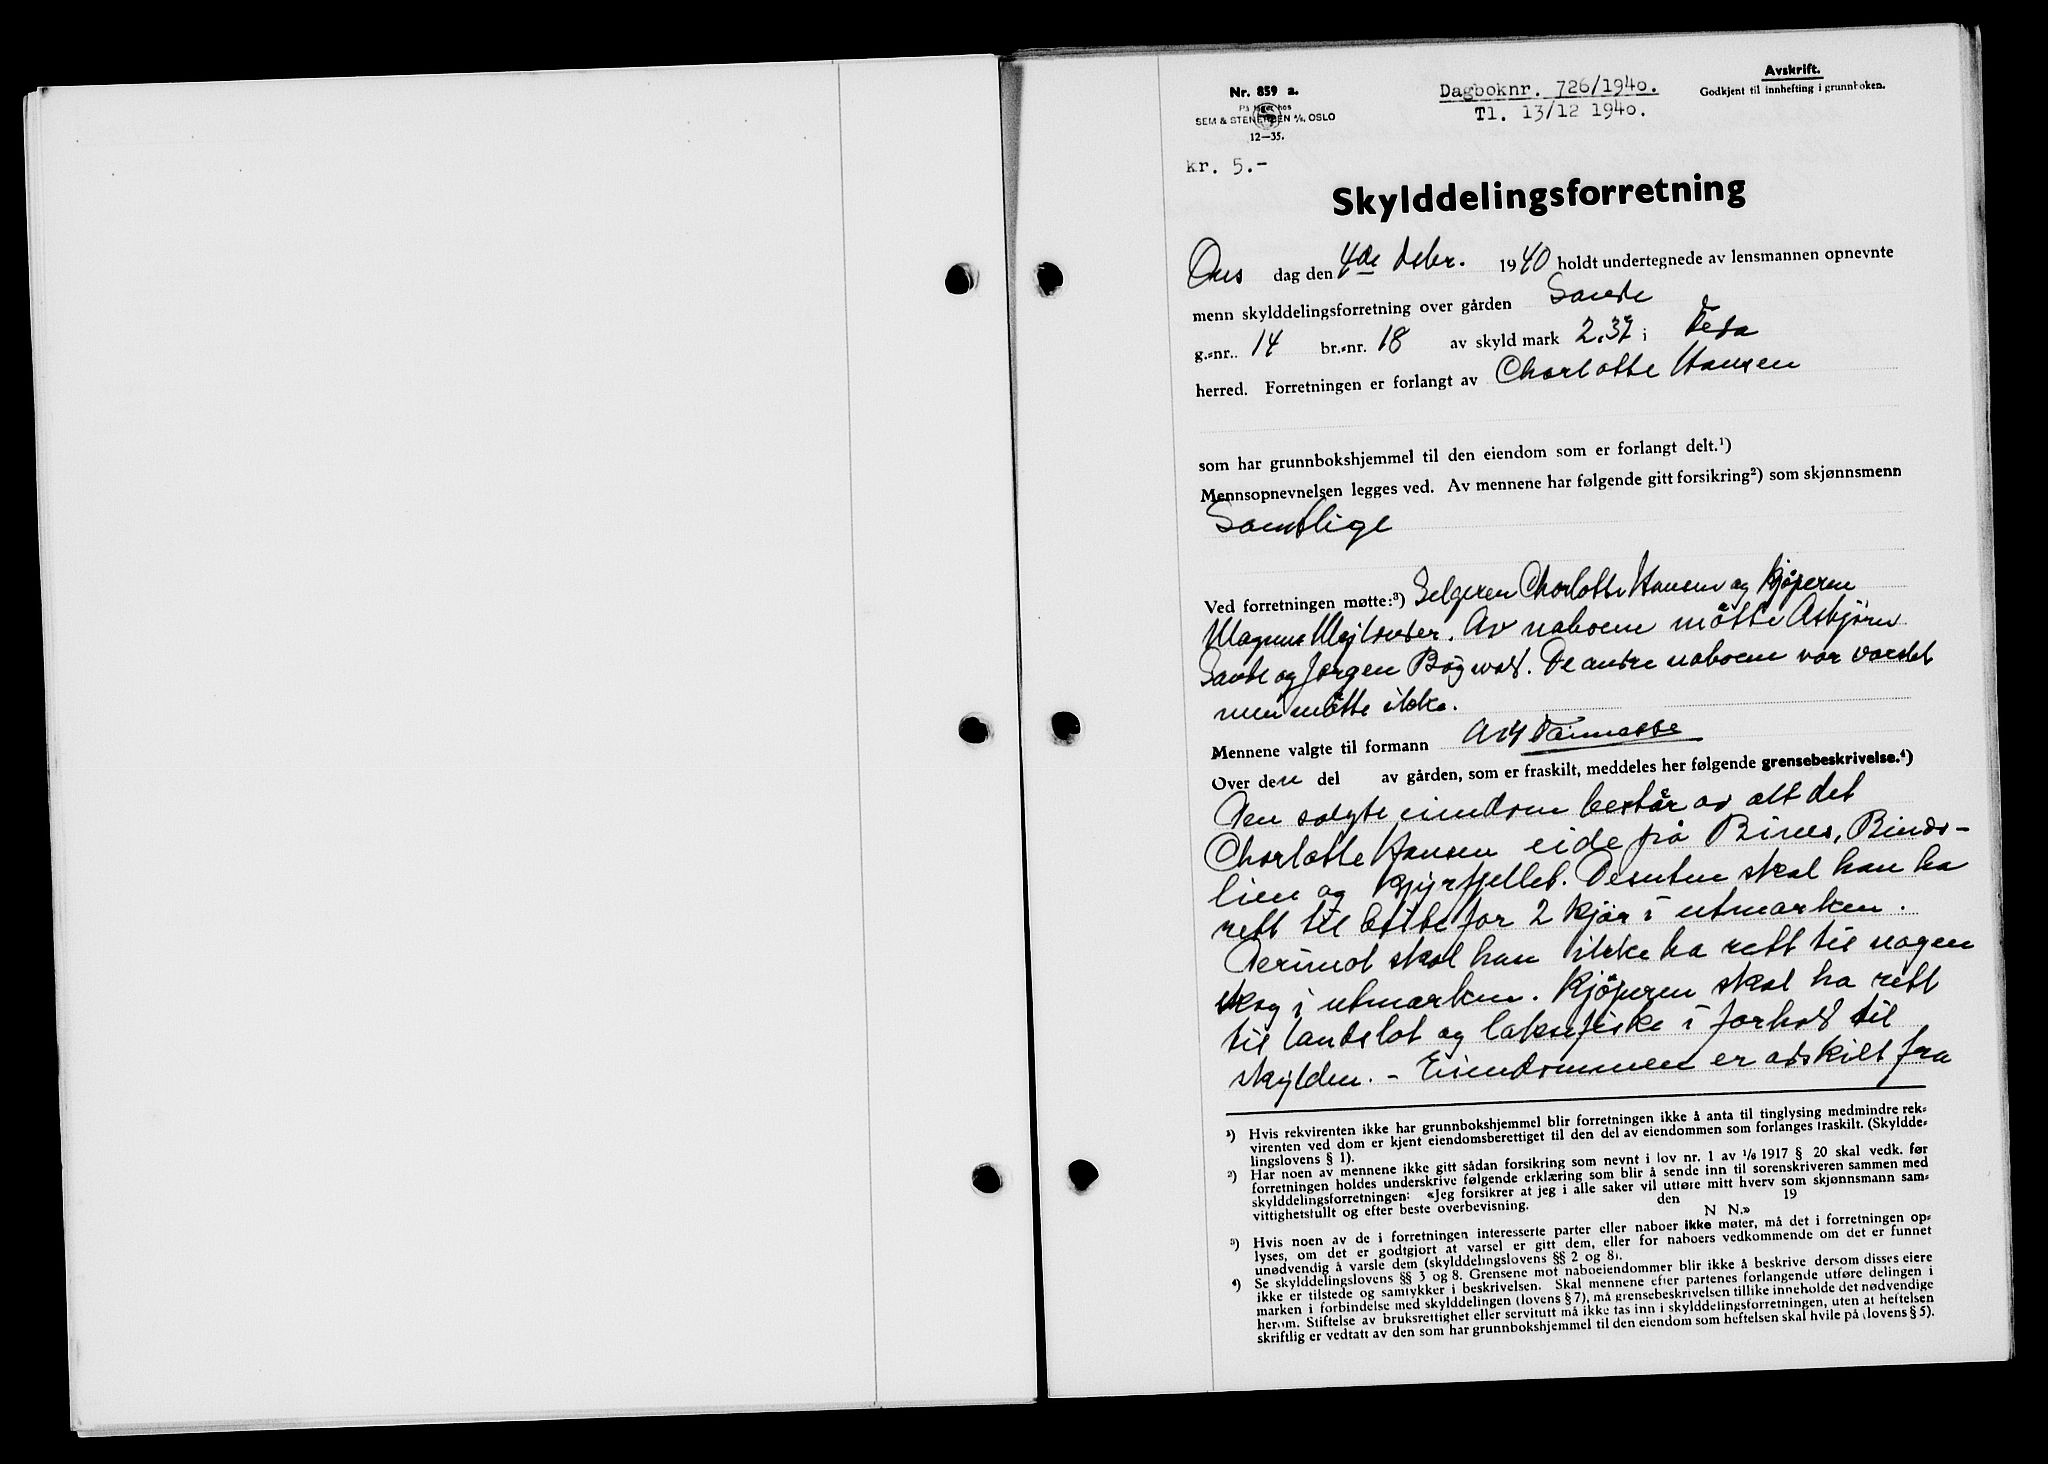 Nr. 859 a.
På lager hos
SEM & STENERSEN A/S, OSLO
12—35.
Dagboknr. 726/1940.
Tl. 13/12 1940.
Avskrift.
Godkjent til innhefting i grunnboken.
kr. 5.-
Skylddelingsforretning
Ons dag den 4de desbr. 1940 holdt undertegnede av lensmannen opnevnte
menn skylddelingsforretning over gården Sande
g.-nr. 14 br.-nr. 18 av skyld mark 2.39 i Feda
herred. Forretningen er forlangt av Charlotte Hansen
som har grunnbokshjemmel til den eiendom som er forlangt delt.¹)
Mennsopnevnelsen legges ved. Av mennene har følgende gitt forsikring²) som skjønnsmenn
Samtlige
Ved forretningen møtte:³) Selgeren Charlotte Hansen og kjøperen
Magnus. Av naboene møtte Asbjørn
Sande og Jørgen Bøgwald. De andre naboene var varslet
men møtte ikke.
Mennene valgte til formann
Over den del av gården, som er fraskilt, meddeles her følgende grensebeskrivelse.⁴)
Den solgte eiendom består av alt det
Charlotte Hansen eide på Birnes, Birnes-
lien og Kjyrfjellet. Desuten skal han ha
rett til beite for 2 kjør i utmarken.
Derimot skal han ikke ha rett til nogen
skog i utmarken. Kjøperen skal ha rett
til landslot og laksefiske i forhold til
skylden. - Eiendommen er adskilt fra
¹) Hvis rekvirenten ikke har grunnbokshjemmel blir forretningen ikke å anta til tinglysing medmindre rek-
virenten ved dom er kjent eiendomsberettiget til den del av eiendommen som forlanges fraskilt. (Skyldde-
lingslovens § 1).
²) Har noen av mennene ikke gitt sådan forsikring som nevnt i lov nr. 1 av 1/6 1917 § 20 skal vedk. før
forretningen holdes underskrive følgende erklæring som blir å sende inn til sorenskriveren sammen med
skylddelingsforretningen: «Jeg forsikrer at jeg i alle saker vil utføre mitt hverv som skjønnsmann sam-
vittighetsfullt og efter beste overbevisning. den 19
N N.»
³) Hvis noen av de i forretningen interesserte parter eller naboer ikke møter, må det i forretningen op-
lyses, om det er godtgjort at varsel er gitt dem, eller for naboers vedkommende om det er funnet
unødvendig å varsle dem (skylddelingslovens §§ 2 og 8).
⁴) Se skylddelingslovens §§ 3 og 8. Grensene mot naboeiendommer blir ikke å beskrive dersom disses eiere
ikke er tilstede og samtykker i beskrivelsen. Skal mennene efter partenes forlangende utføre delingen i
marken i forbindelse med skylddelingen (lovens § 7), må grensebeskrivelsen tillike inneholde det nødvendige
herom. Stiftelse av bruksrettighet eller servitutt må ikke tas inn i skylddelingsforretningen, uten at heftelsen
skriftlig er vedtatt av den som har grunnbokshjemmel til den eiendom som heftelsen skal hvile på (lovens § 5).